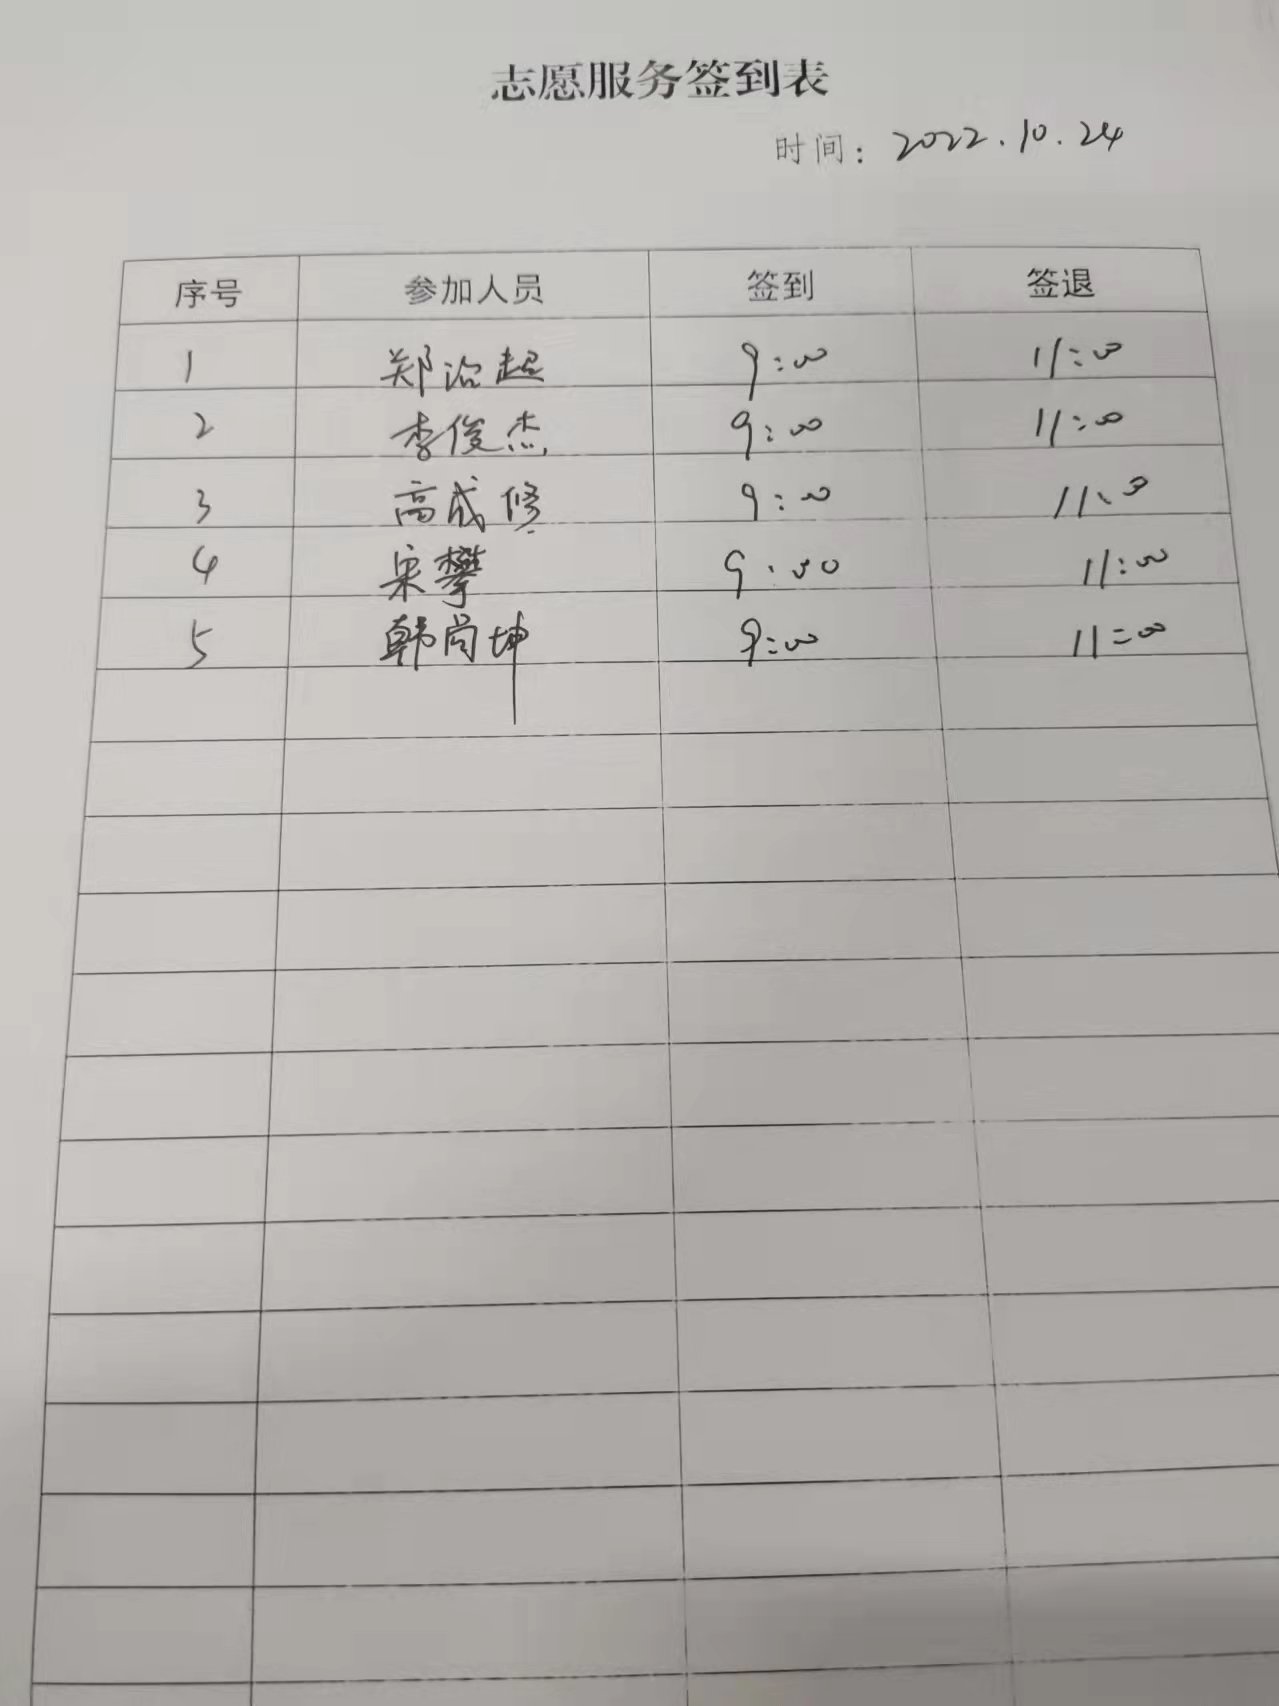 志愿服务签到表
时间：2022.10.24
序号 参加人员 签到 签退
1 郑治超 9:00 11:00
2 李俊杰 9:00 11:00
3 高成修 9:00 11:00
4 宋攀 9:00 11:00
5 韩尚坤 9:00 11:00